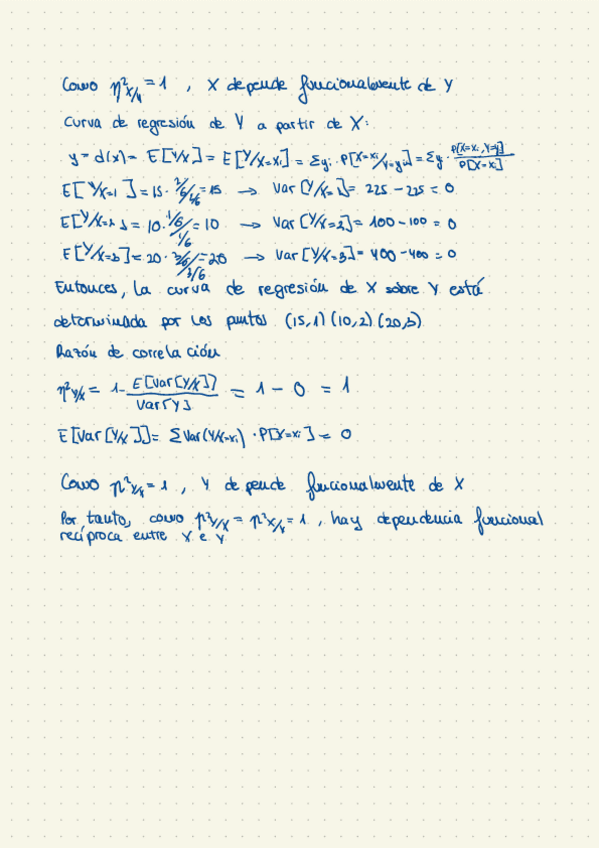 Como η²x/y = 1 , X depende funcionalmente de Y
Curva de regresión de Y a partir de X:
y = d(x) = E[Y/X] = E[Y/X=xi] = Σyi · P[X=xi/Y=yi] = Σyi · P[X=xi, Y=yj]/P[X=xi]
E[Y/X=1] = 15 · 2/6/2/6 = 15 → Var[Y/X=1] = 225 - 225 = 0
E[Y/X=2] = 10 · 1/6/1/6 = 10 → Var[Y/X=2] = 100 - 100 = 0
E[Y/X=3] = 20 · 3/6/3/6 = 20 → Var[Y/X=3] = 400 - 400 = 0
Entonces, la curva de regresión de X sobre Y está
determinada por los puntos (15,1) (10,2) (20,3)
Razón de correlación
η²y/x = 1 - E[Var[Y/X]]/Var[Y] = 1 - 0 = 1
E[Var[Y/X]] = ΣVar(Y/X=xi) · P[X=xi] = 0
Como η²y/x = 1 , Y depende funcionalmente de X
Por tanto, como η²y/x = η²x/y = 1 , hay dependencia funcional
recíproca entre X e Y